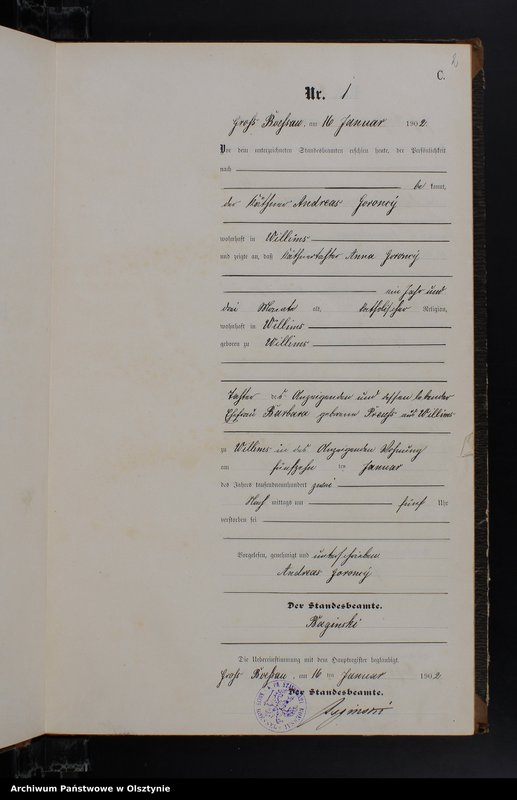 C.
Nr. 1
Groß Boeßau, am 16 Januar 1902.
Vor dem unterzeichneten Standesbeamten erschien heute, der Persönlichkeit
nach
be kannt,
der Käthner Andreas Goroncÿ
wohnhaft in Willims
und zeigte an, daß Käthnertochter Anna Goroncÿ
ein Jahr und
drei Monate alt, katholischer Religion,
wohnhaft in Willims
geboren zu Willims
Tochter des Anzeigenden und dessen lebender
Ehefrau Barbara geborene Preuß aus Willims
zu Willims in des Anzeigenden Wohnung
am fünfzehn ten Januar
des Jahres tausendneunhundert zwei
Nach mittags um fünf Uhr
verstorben sei
Vorgelesen, genehmigt und unterschrieben
Andreas Goroncÿ
Der Standesbeamte.
Baginski
Die Uebereinstimmung mit dem Hauptregister beglaubigt.
Groß Boeßau, am 16 ten Januar 1902
Der Standesbeamte.
Archiwum Państwowe w Olsztynie